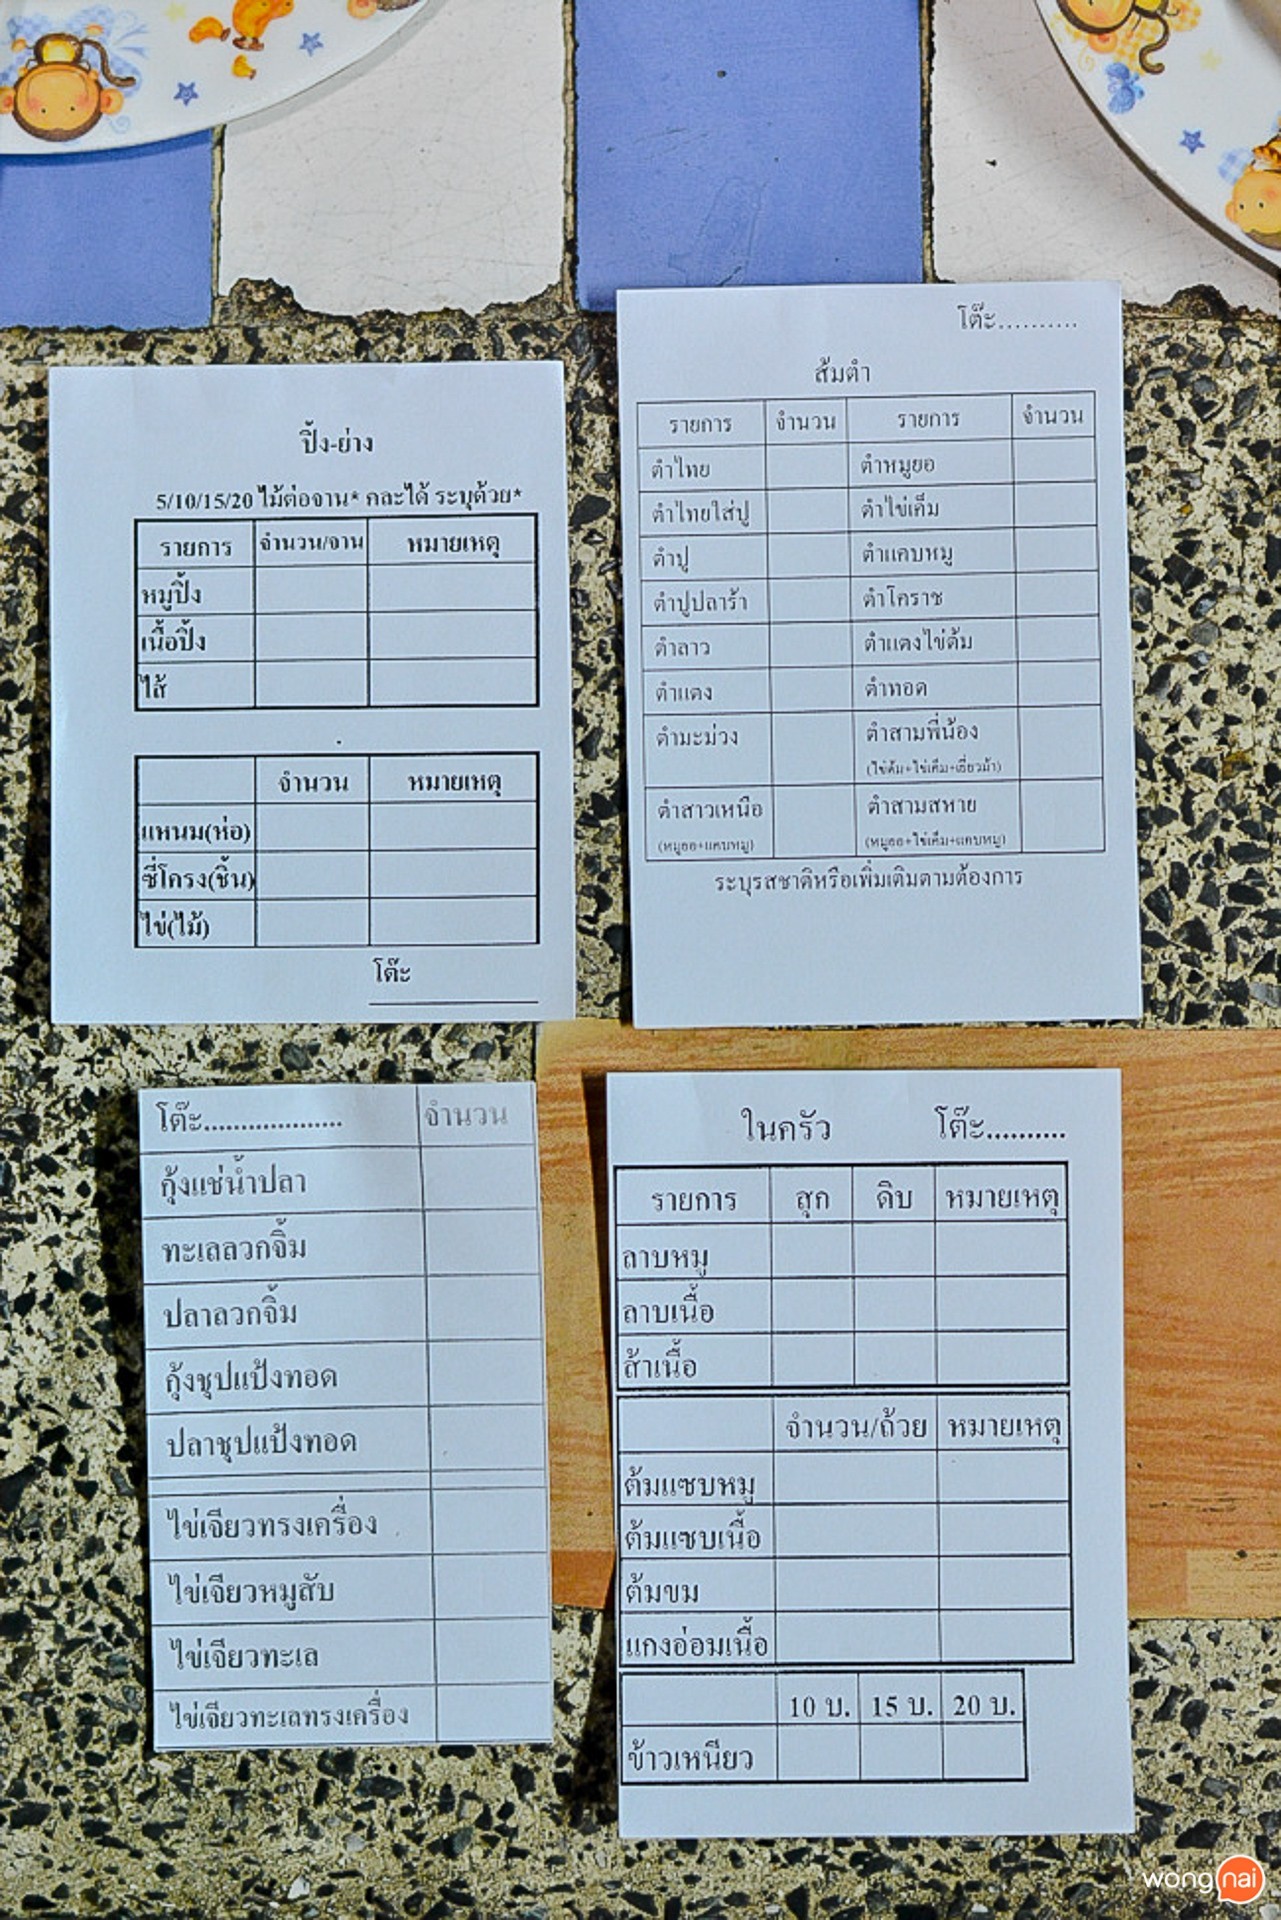 ปิ้ง-ย่าง
5/10/15/20 ไม้ต่อจาน* คละได้ ระบุด้วย*
รายการ จำนวน/จาน หมายเหตุ
หมูปิ้ง
เนื้อปิ้ง
ไส้
จำนวน หมายเหตุ
แหนม(ห่อ)
ซี่โครง(ชิ้น)
ไข่(ไม้)
โต๊ะ
โต๊ะ..........
ส้มตำ
รายการ จำนวน รายการ จำนวน
ตำไทย ตำหมูยอ
ตำไทยใส่ปู ตำไข่เค็ม
ตำปู ตำแคบหมู
ตำปูปลาร้า ตำโคราช
ตำลาว ตำแตงไข่ต้ม
ตำแตง ตำทอด
ตำมะม่วง ตำสามพี่น้อง
(ไข่ต้ม+ไข่เค็ม+เยี่ยวม้า)
ตำสาวเหนือ ตำสามสหาย
(หมูยอ+แคบหมู) (หมูยอ+ไข่เค็ม+แคบหมู)
ระบุรสชาติหรือเพิ่มเติมตามต้องการ
โต๊ะ................... จำนวน
กุ้งแช่น้ำปลา
ทะเลลวกจิ้ม
ปลาลวกจิ้ม
กุ้งชุปแป้งทอด
ปลาชุปแป้งทอด
ไข่เจียวทรงเครื่อง
ไข่เจียวหมูสับ
ไข่เจียวทะเล
ไข่เจียวทะเลทรงเครื่อง
ในครัว โต๊ะ..........
รายการ สุก ดิบ หมายเหตุ
ลาบหมู
ลาบเนื้อ
ส้าเนื้อ
จำนวน/ถ้วย หมายเหตุ
ต้มแซบหมู
ต้มแซบเนื้อ
ต้มขม
แกงอ่อมเนื้อ
10 บ. 15 บ. 20 บ.
ข้าวเหนียว
wongnai